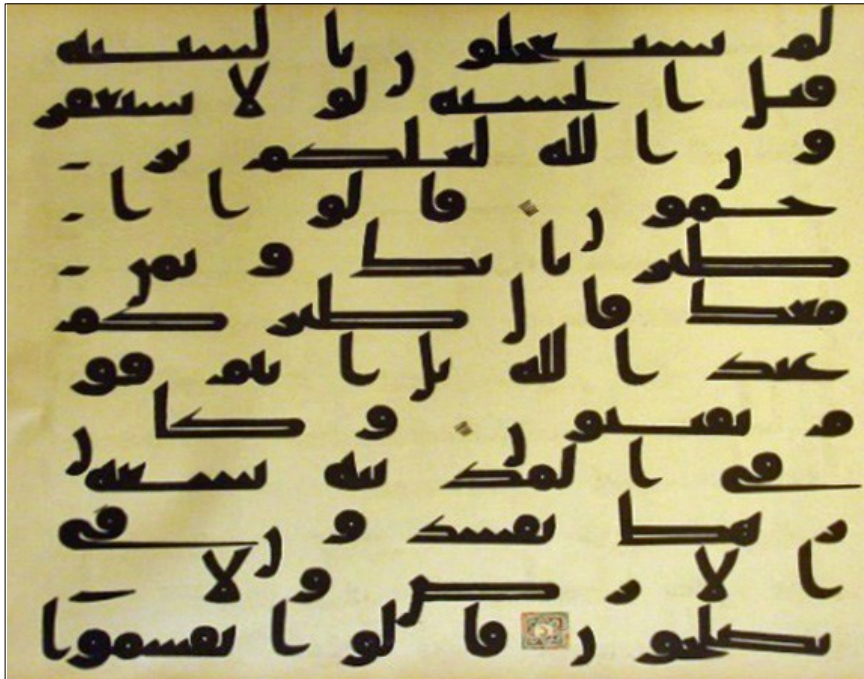 لم تستعجلون بالسيئة
قبل الحسنة لولا تستغفر
ون الله لعلكم تر
حمون قالوا ا
طيرنا بك وبمن
معك قال طئركم
عند الله بل انتم قو
م تفتنون وكان
في المدينة تسعة
رهط يفسدون في
الارض ولا
يصلحون قالوا تقسموا